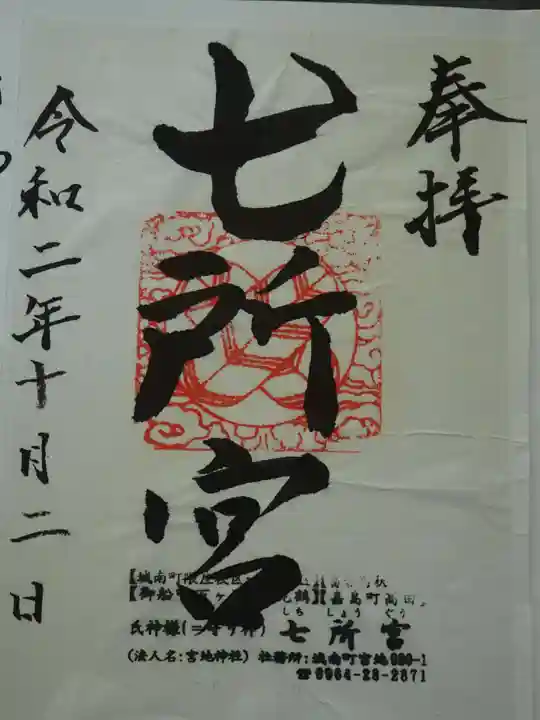 奉拝
七所宮
令和二年十月二日
【城南町隈庄
【御船町
【嘉島町高田】
しち しょ ぐう
氏神様(＝守り神) 七所宮
(法人名:宮地神社) 社務所:城南町宮地080-1
☎0964-28-2871